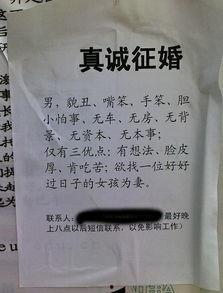 真诚征婚
男，貌丑、嘴笨、手笨、胆
小怕事、无车、无房、无背
景、无资本、无本事；
仅有三优点：有想法、脸皮
厚、肯吃苦；欲找一位好好
过日子的女孩为妻。
联系人：
最好晚
上八点以后短信联系，以免影响工作）